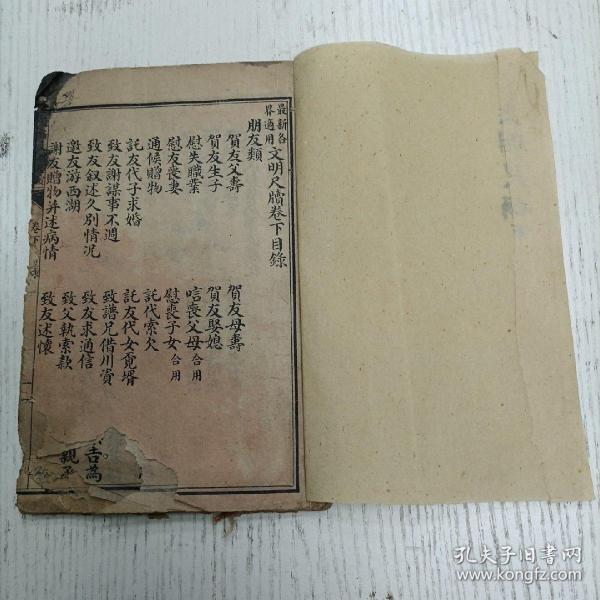 最新各界適用文明尺牘卷下目錄
朋友類
賀友父壽 賀友母壽
賀友生子 賀友娶媳
慰失職業 唁喪父母合用
慰友喪妻 慰喪子女合用
通候贈物 託代索欠
託友代子求婚 託友代女覓壻
致友謝謀事不週 致譜兄借川資
致友叙述久別情況 致友求通信
邀友游西湖 致父執索款
謝友贈物并述病情 致友述懷
卷下
吉為
親丞
孔夫子旧书网
www.kongfz.com